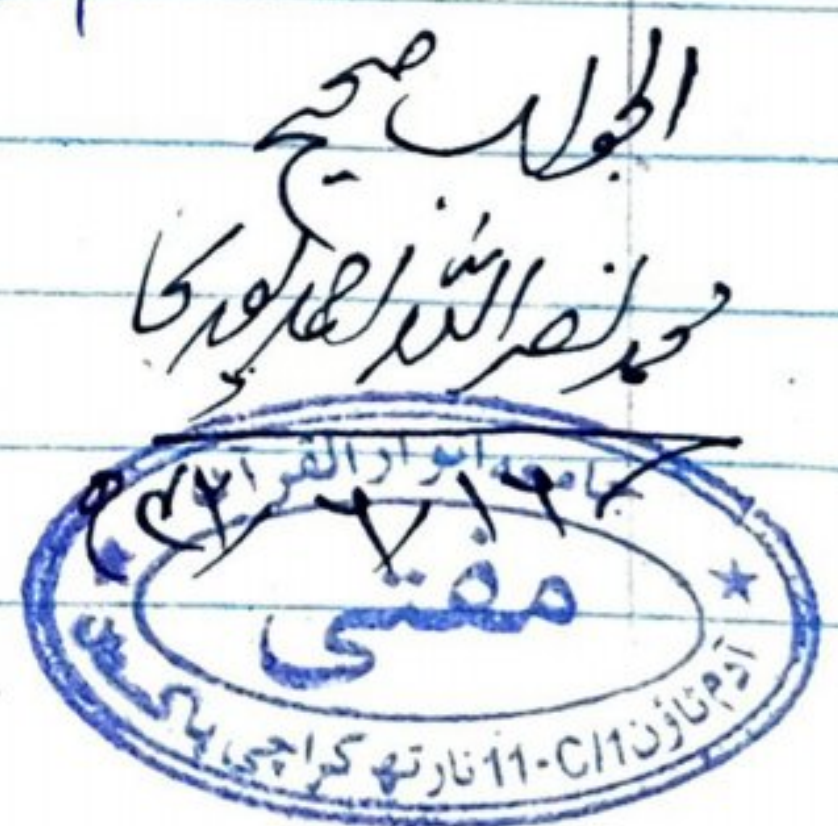 الجواب صحیح
محمد نصر اللہ احمد پوری
جامعہ انوار القرآن
مفتی
آدم ٹاؤن 11-C/1 نارتھ کراچی پاکستان